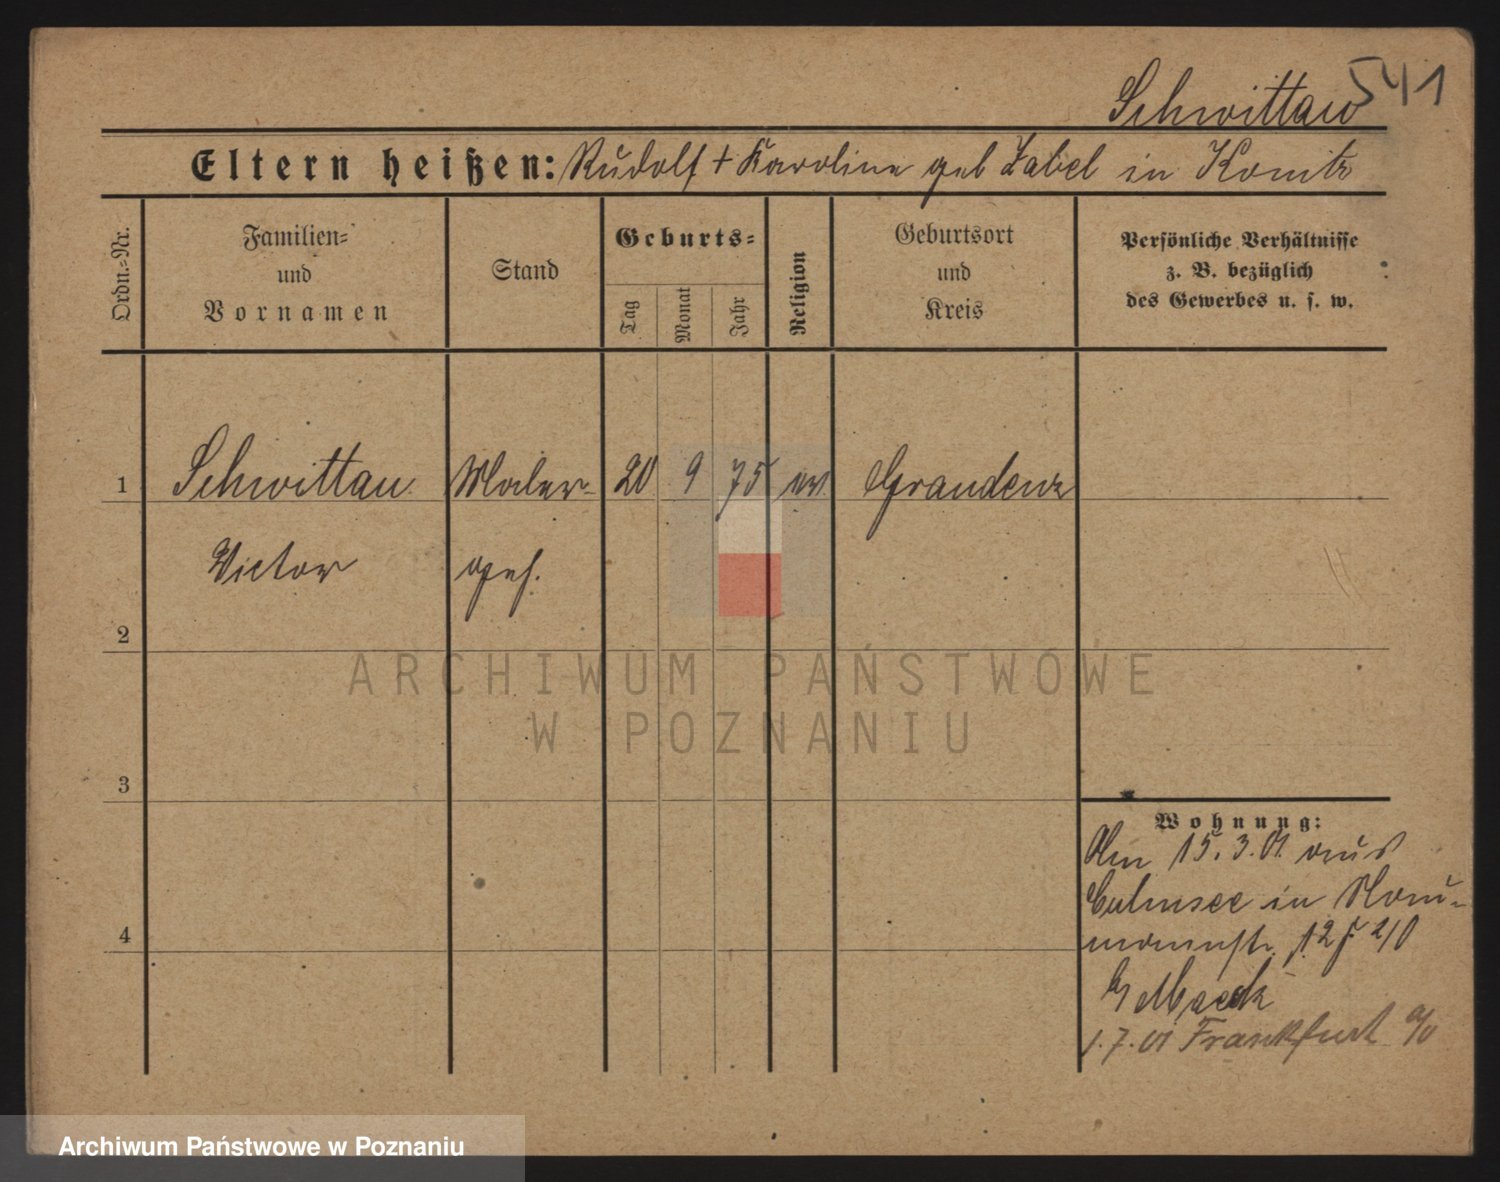 541
Schwittau
Eltern heißen: Rudolf + Karoline geb Zabel in Konitz
Ordn.-Nr.
Familien- und Vornamen
Stand
Geburts-
Tag
Monat
Jahr
Religion
Geburtsort und Kreis
Persönliche Verhältnisse
z. B. bezüglich
des Gewerbes u. s. w.
1 Schwittau Maler- 20 9 75 ev. Graudenz
Victor geh.
2
ARCHIWUM PAŃSTWOWE
W POZNANIU
3
Wohnung:
Am 15.3.01 aus
Culmsee in Nau-
mannstr. 12 210
4
1.7.01 Frankfurt a/O
Archiwum Państwowe w Poznaniu